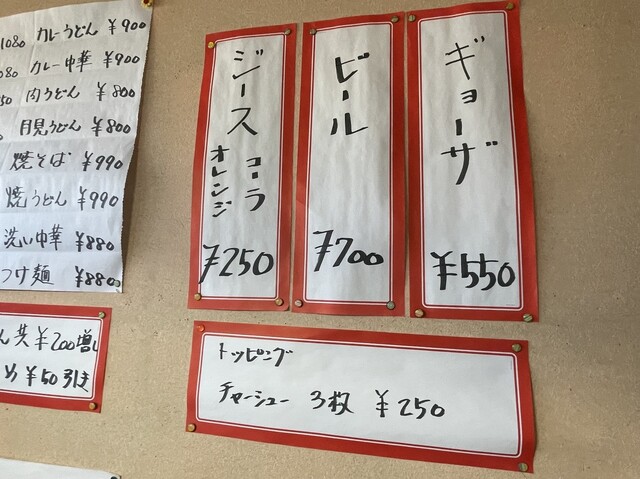 1080 カレーうどん ¥900
カレー中華 ¥900
肉うどん ¥800
月見うどん ¥800
焼そば ¥990
焼うどん ¥990
洗い中華 ¥880
つけ麺 ¥880
ん共¥200増し
め ¥50引き
ジース
コーラ
オレンジ
¥250
ビール
¥700
ギョーザ
¥550
トッピング
チャーシュー 3枚 ¥250